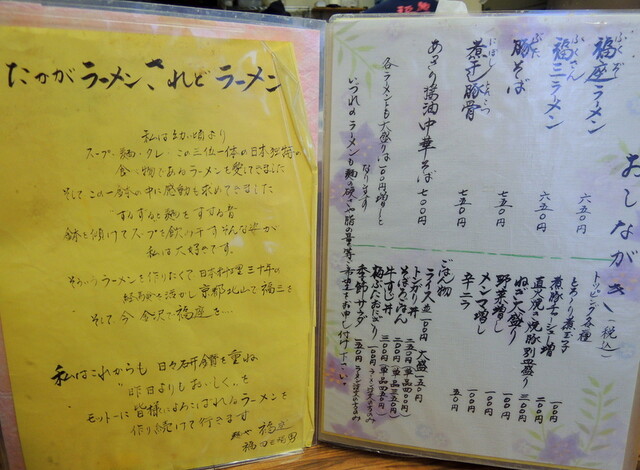 たかがラーメン、されどラーメン
私は幼い頃より
スープ・麺・タレ・この三位一体の日本独特の
食べ物であるラーメンを愛してきました
そしてこの一鉢の中に感動も求めてきました
"するするっと麺をすする音
鉢を傾けてスープを飲み干すそんな姿が
私は大好きです。
そういうラーメンを作りたくて日本料理三十年の
経験を活かし京都北山で福三を
そして今金沢で福座を…
私はこれからも日々研鑽を重ね
"昨日よりもおいしく"を
モットーに皆様によろこばれるラーメンを
作り続けて行きます
麺や 福座
おしながき（税込）
福座ラーメン 六五〇円
ふくぞ
福三ラーメン 六五〇円
ふくさん
豚そば 七五〇円
ぶた
煮干豚骨 七五〇円
にぼしとんこつ
あっさり醤油中華そば 七〇〇円
各ラーメンとも大盛りは一〇〇円増しと
なります
いづれのラーメンも麺の硬さや脂の量等御希望をお申し付け下さい。
トッピング各種
とろーり煮玉子 一〇〇円
煮豚チャーシュー増 二〇〇円
直火焼き焼豚別皿盛り 三〇〇円
ねぎ大盛り 一〇〇円
野菜増し 一〇〇円
メンマ増し 一〇〇円
辛ニラ 五〇円
ごはん物
ライス 並 一〇〇円 大盛 一五〇円
トンポーリ丼 二五〇円
そぼろごはん 二五〇円
牛すじ丼 三〇〇円
梅ぶたおにぎり 一〇〇円
季節サラダ 一五〇円